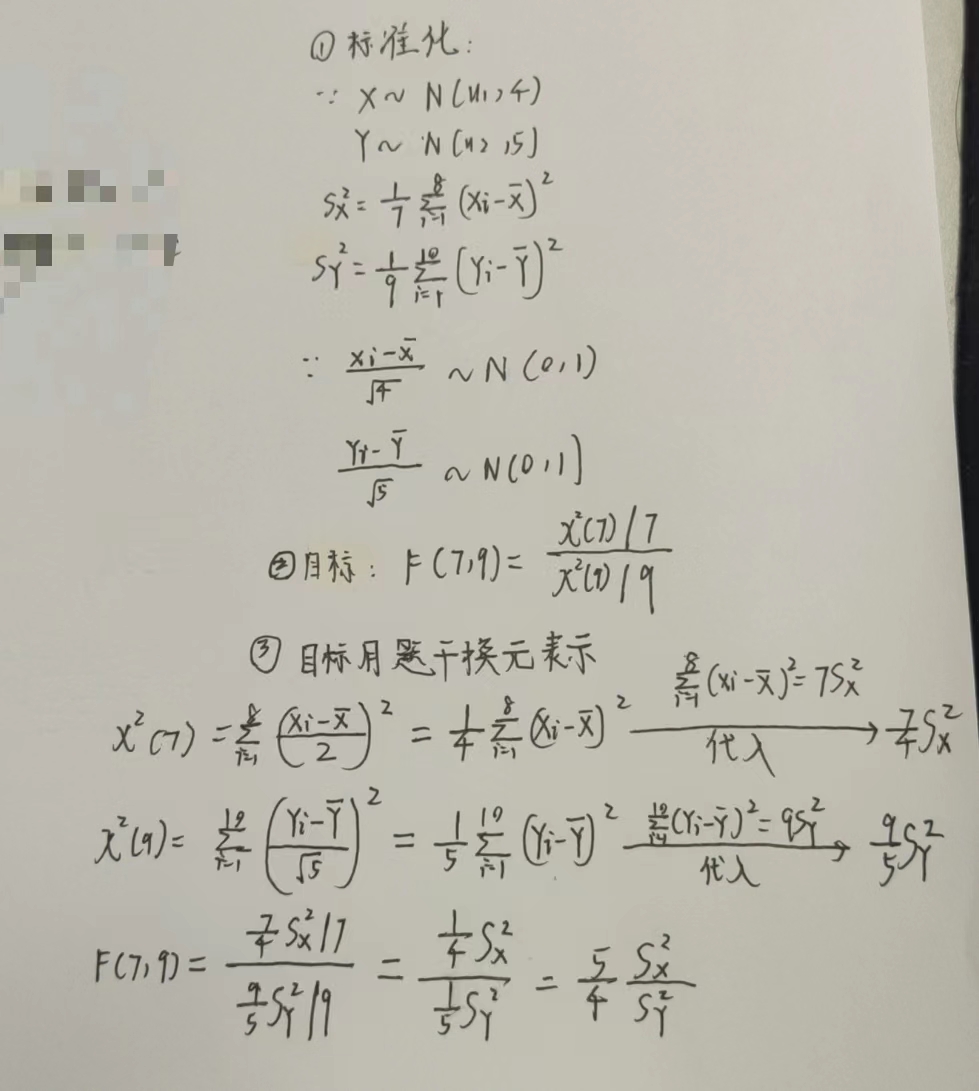 ① 标准化:
∵ X ~ N(u₁, 4)
Y ~ N(u₂, 5)
Sx² = 1/7 Σᵢ₌₁⁸ (Xi - X̄)²
SY² = 1/9 Σᵢ₌₁¹⁰ (Yi - Ȳ)²
∵ (Xi - X̄)/√4 ~ N(0,1)
(Yi - Ȳ)/√5 ~ N(0,1)
② 目标: F(7,9) = (χ²(7)/7)/(χ²(9)/9)
③ 目标用题干换元表示
χ²(7) = Σᵢ₌₁⁸ ((Xi - X̄)/2)² = 1/4 Σᵢ₌₁⁸ (Xi - X̄)² Σᵢ₌₁⁸ (Xi - X̄)² = 7Sx² 代入 → 7/4 Sx²
χ²(9) = Σᵢ₌₁¹⁰ ((Yi - Ȳ)/√5)² = 1/5 Σᵢ₌₁¹⁰ (Yi - Ȳ)² Σᵢ₌₁¹⁰ (Yi - Ȳ)² = 9SY² 代入 → 9/5 SY²
F(7,9) = (7/4 Sx²/7)/(9/5 SY²/9) = (1/4 Sx²)/(1/5 SY²) = 5/4 Sx²/SY²